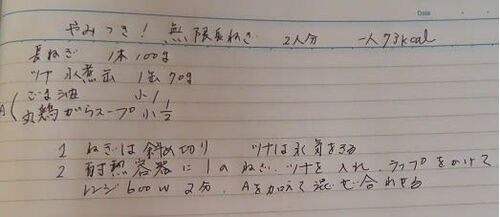 Date
やみつき! 無限長ねぎ 2人分 一人73kcal
長ねぎ 1本 100g
ツナ水煮缶 1缶 70g
A ( ごま油 小1
丸鶏がらスープ 小1/2
1 ねぎは斜め切り ツナは水気をきる
2 耐熱容器に1のねぎ、ツナを入れ、ラップをかけて
レンジ600W 2分、Aを加えて混ぜ合わせる